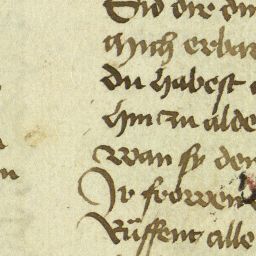 Sid die du
Mich erbar
du habest
hin zu alde
wan sy den
Ir frowen
Rüffent alle
n